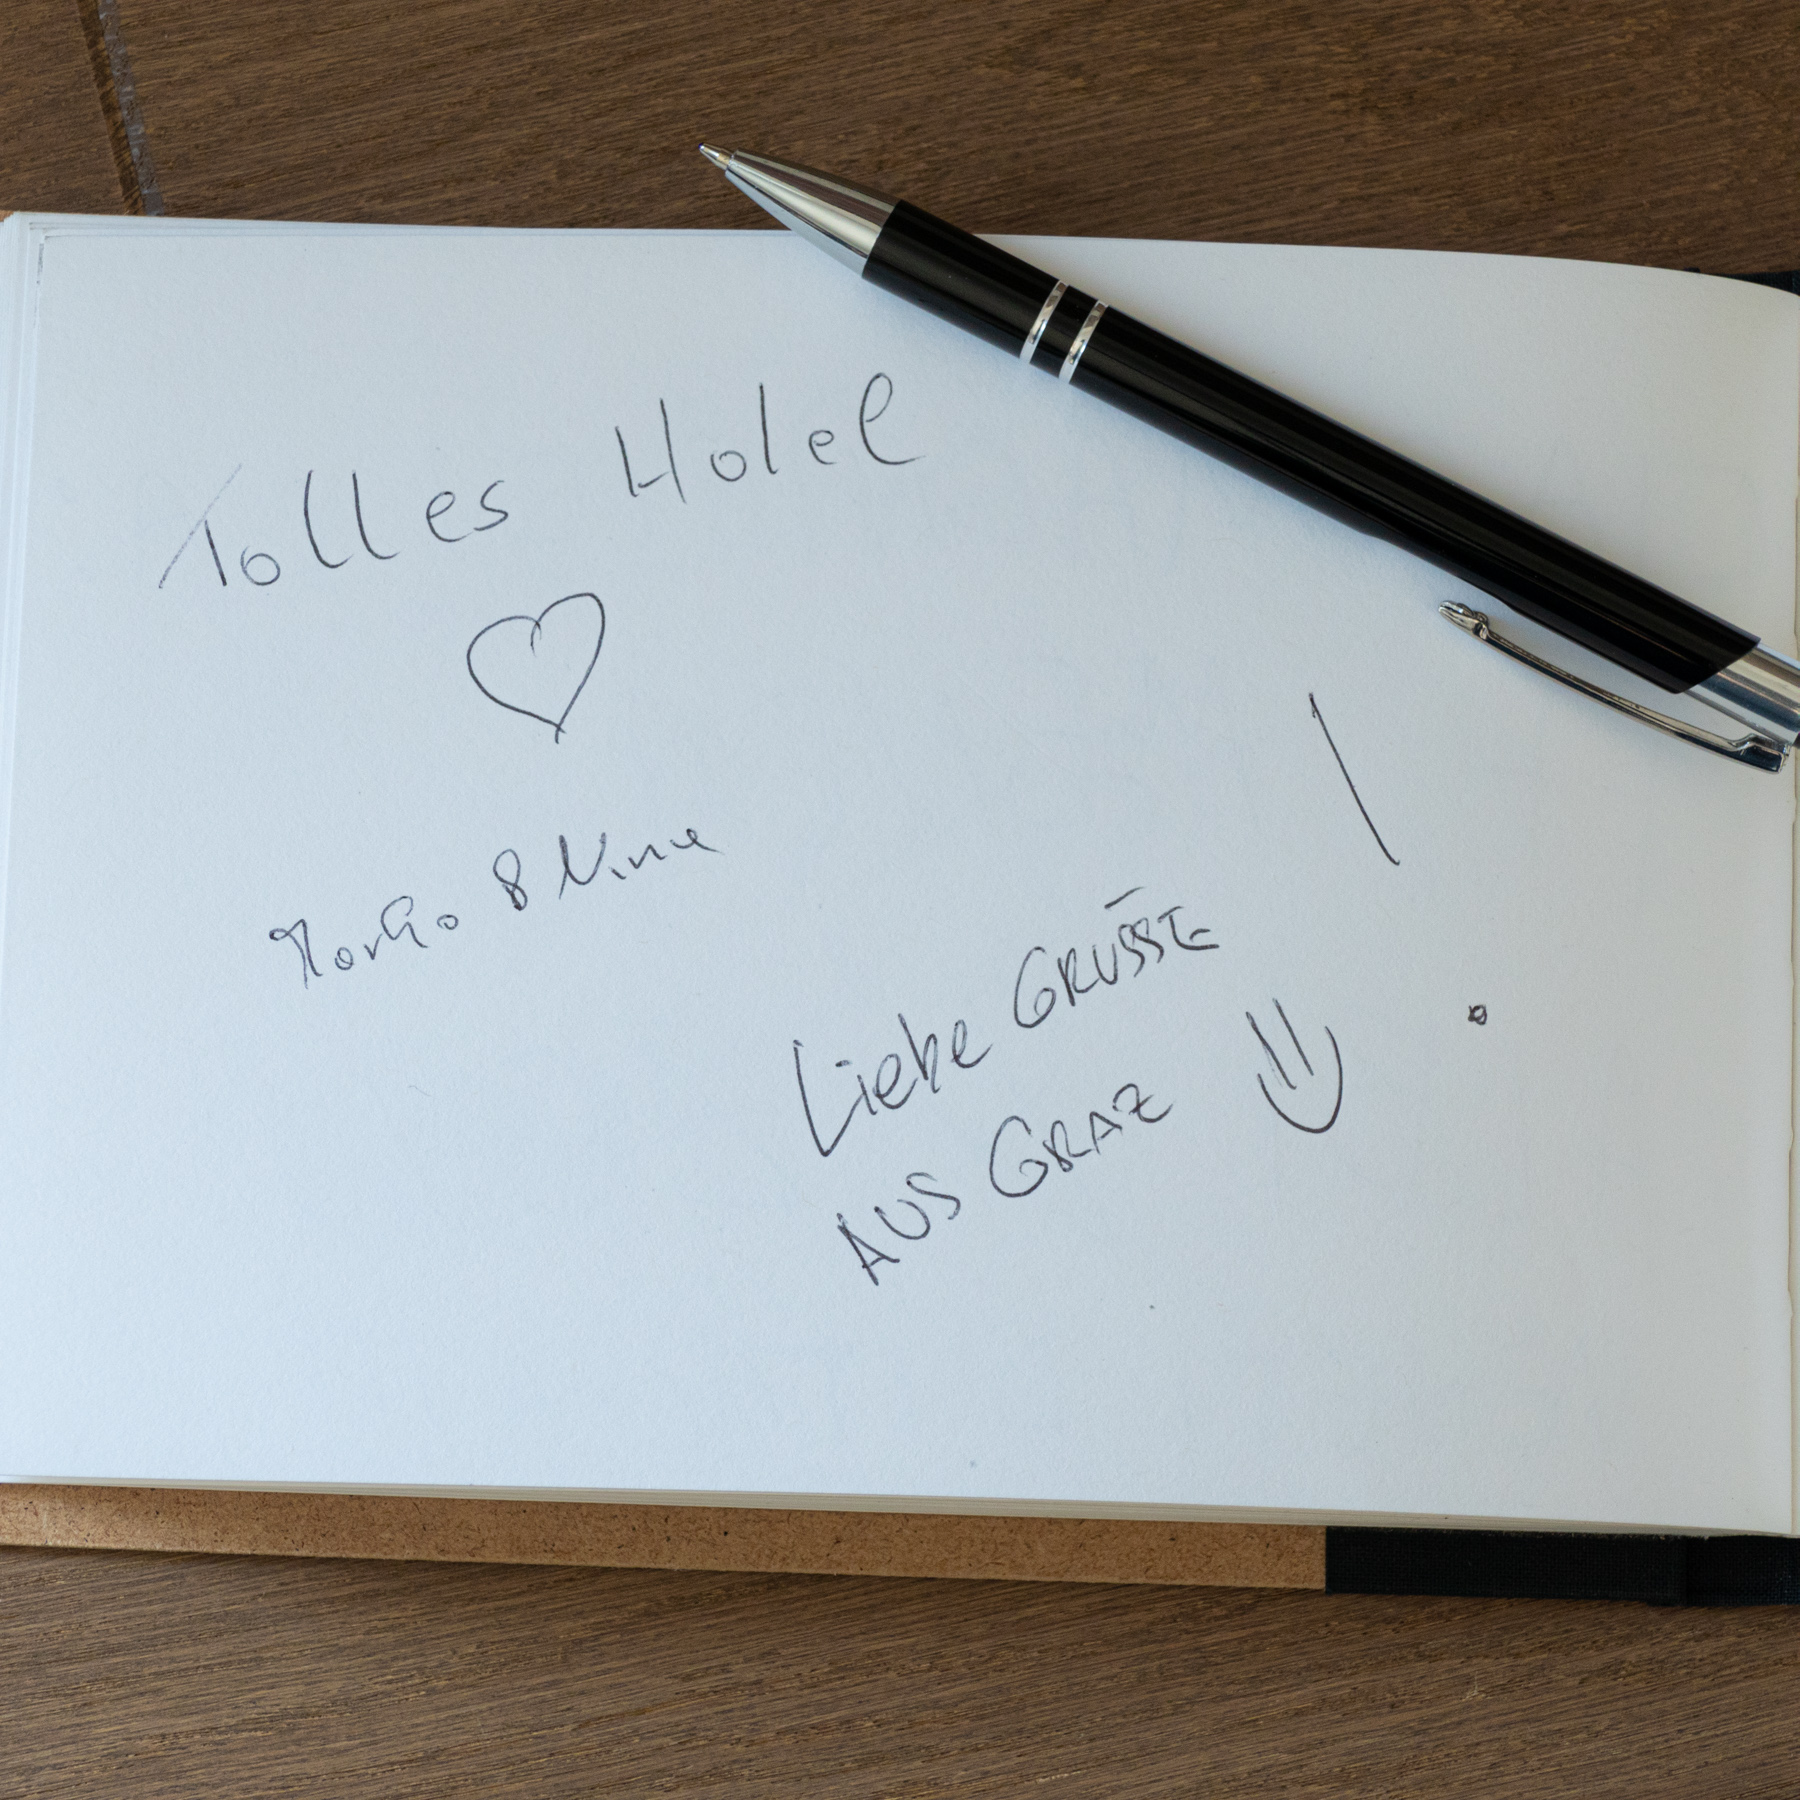 Tolles Hotel
Marko & Nina
Liebe GRÜSSE
AUS GRAZ !